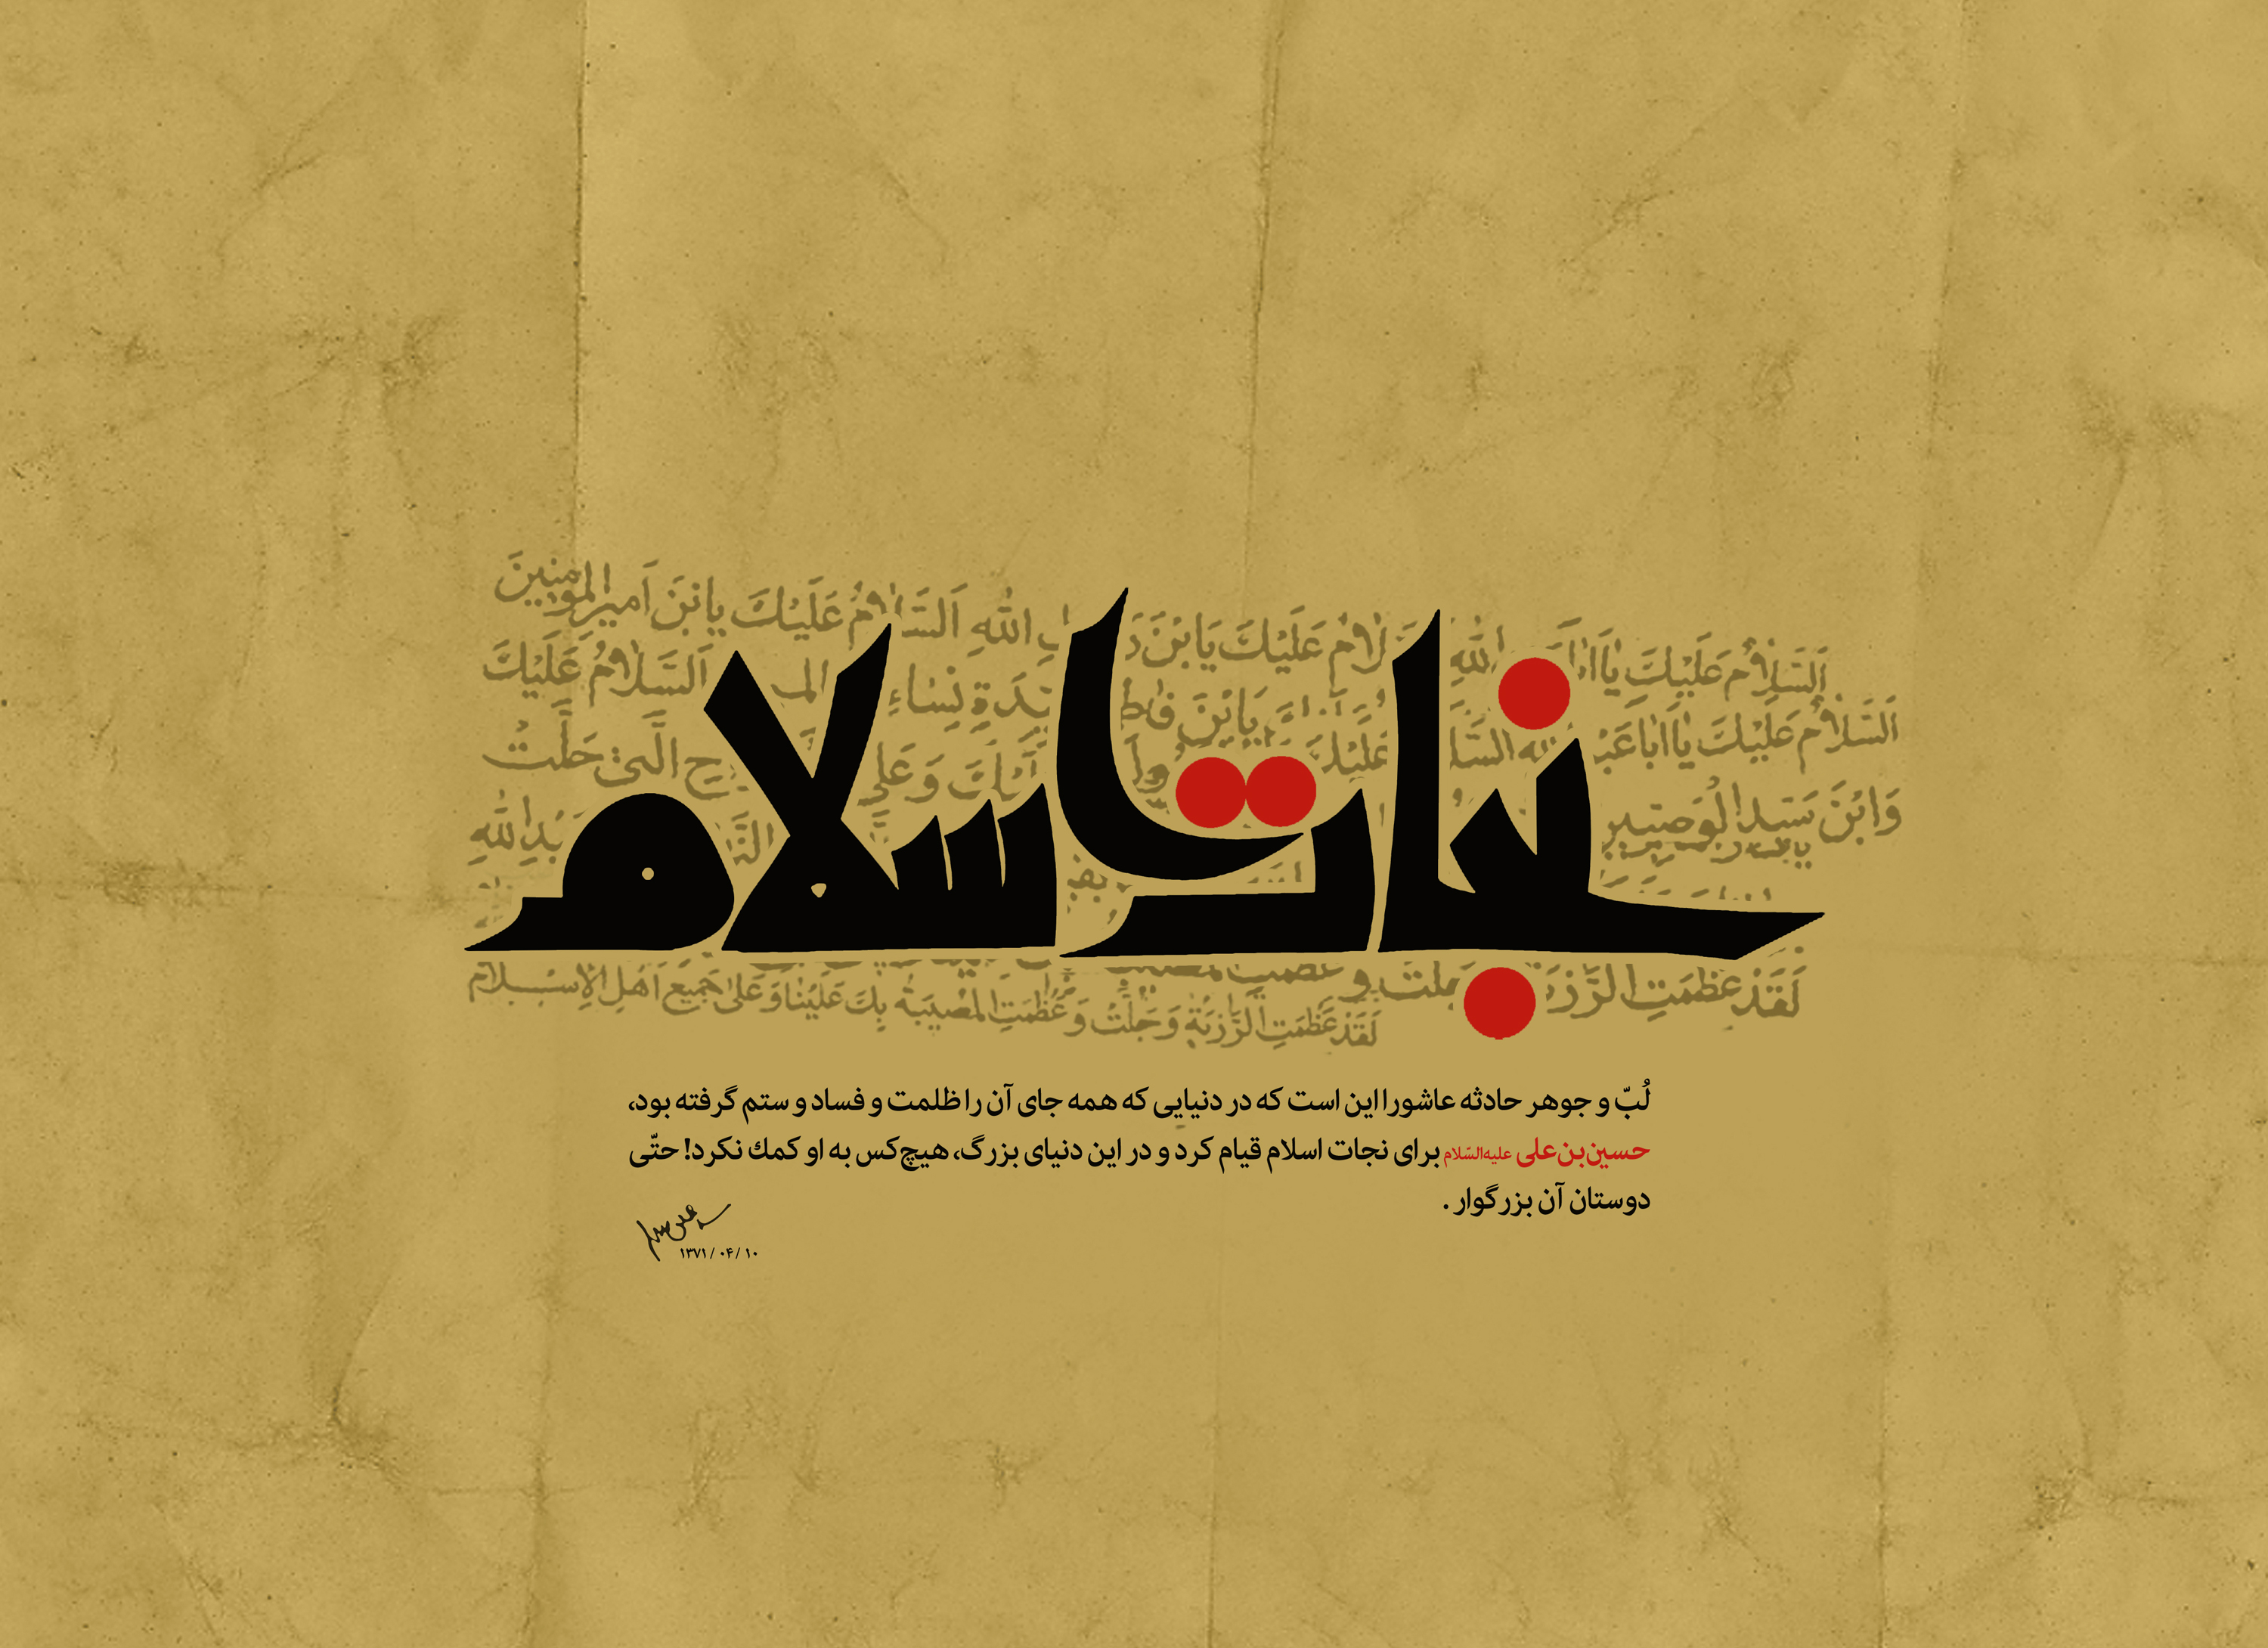 اَلسَّلامُ عَلَيْكَ يا اَبا الله لامُ عَلَيْكَ يَا بْنَ الله اَلسَّلامُ عَلَيْكَ يابْنَ اَميرِ المُؤمِنينَ
اَلسَّلامُ عَلَيْكَ يا اَبا عَبْدِ يَابْنَ نِساءِ اَلسَّلامُ عَلَيْكَ
وَابْنَ سَيِّدِ الْوَصِيّينَ وَعَلَى الَّتى حَلَّتْ
نجات اسلام
لَقَدْ عَظُمَتِ الرَّزِيَّةُ جلت و
لَقَدْ عَظُمَتِ الرَّزِيَّةُ وَجَلَّتْ وَعَظُمَتِ المُصيبَةُ بِكَ عَلَيْنا وَعَلى جَميعِ اَهْلِ الاِسْلام
لُبّ و جوهر حادثه عاشورا این است که در دنیایی که همه جای آن را ظلمت و فساد و ستم گرفته بود،
حسین‌بن‌علی علیه‌السّلام برای نجات اسلام قیام کرد و در این دنیای بزرگ، هیچ‌کس به او کمك نکرد! حتّی
دوستان آن بزرگوار .
۱۳۷۱/۰۴/۱۰